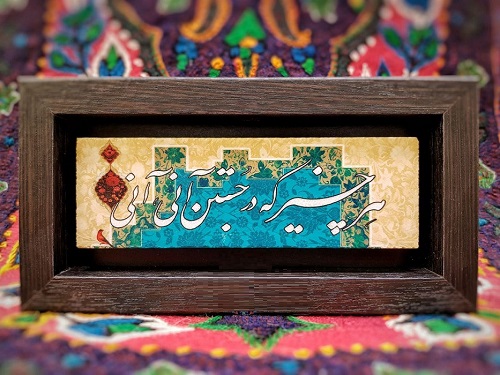 هر چیز که در جستن آنی آنی